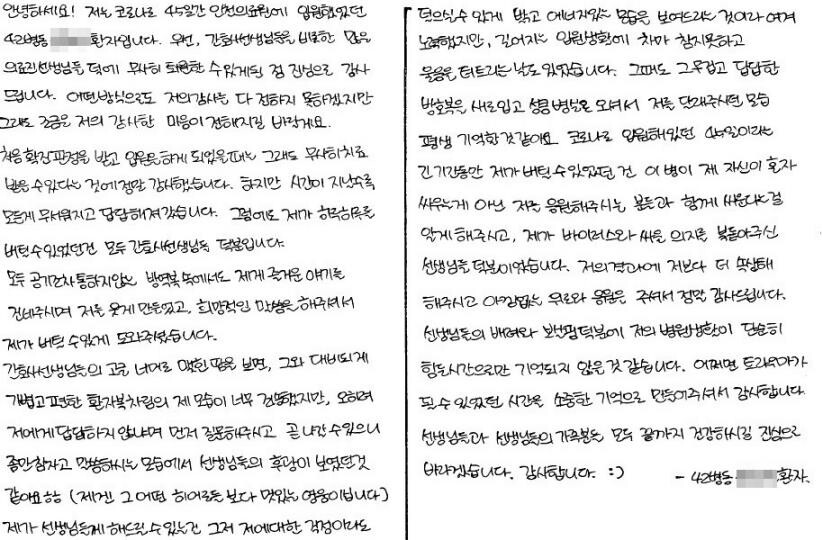 안녕하세요! 저는 코로나로 45일간 인천의료원에 입원했었던
42병동 환자입니다. 우선, 간호사선생님들을 비롯한 많은
의료진선생님들 덕에 무사히 퇴원할 수 있게된 점 진심으로 감사
드립니다. 어떤방식으로도 저의감사를 다 전하지 못하겠지만
그래도 조금은 저의 감사한 마음이 전해지길 바랄게요.
처음 확진판정을 받고 입원을하게 되었을때는 그래도 무사히치료
받을 수있다는 것에 정말 감사했습니다. 하지만 시간이 지날수록
모든게 무서워지고 답답해져갔습니다. 그럼에도 제가 하루하루를
버틸수있었던건 모두 간호사선생님들 덕분입니다.
모두 공기한자 통하지않는 방역복 속에서도 제게 즐거운 얘기를
건네주시며 저를 웃게 만들었고, 희망적인 말씀을 해주셔서
제가 버틸 수있게 도와주셨습니다.
간호사선생님들의 고글 너머로 맺힌 땀을 보면, 그와 대비되게
가볍고 편한 환자복차림의 제 모습이 너무 죄송했지만, 오히려
저에게 답답하지 않냐며 먼저 질문해주시고 곧 나갈 수있으니
좀만참자고 말씀하시는 모습에서 선생님들의 후광이 보였던것
같아요ㅎㅎ (제겐 그 어떤 히어로들 보다 멋있는 영웅이십니다)
제가 선생님들께 해드릴 수있는건 그저 저에대한 걱정이라도
덜으실수 있게 밝고 에너지있는 모습을 보여드리는 것이라 여겨
노력했지만, 길어지는 입원생활에 차마 참지못하고
울음을 터트리는 날도 있었습니다. 그때도 그 무겁고 답답한
방호복을 새로입고 성큼 병실로 오셔서 저를 달래주시던 모습
평생 기억할것같아요. 코로나로 입원해있던 45일이라는
긴 기간동안 제가 버틸 수 있었던 건 이 병이 제 자신이 혼자
싸우는게 아닌 저를 응원해주시는 분들과 함께 싸운다는걸
알게 해주시고, 제가 바이러스와 싸울 의지를 북돋아주신
선생님들 덕분이었습니다. 저의결과에 저보다 더 속상해
해주시고 아낌없는 위로와 응원을 주셔서 정말 감사드립니다.
선생님들의 배려와 보살핌덕분에 저의 병원생활이 단순히
힘든시간으로만 기억되지 않을것 같습니다. 어쩌면 트라우마가
될 수 있었던 시간을 소중한 기억으로 만들어주셔서 감사합니다.
선생님들과 선생님들의 가족분들 모두 끝까지 건강하시길 진심으로
바라겠습니다. 감사합니다. :)
- 42병동 환자.